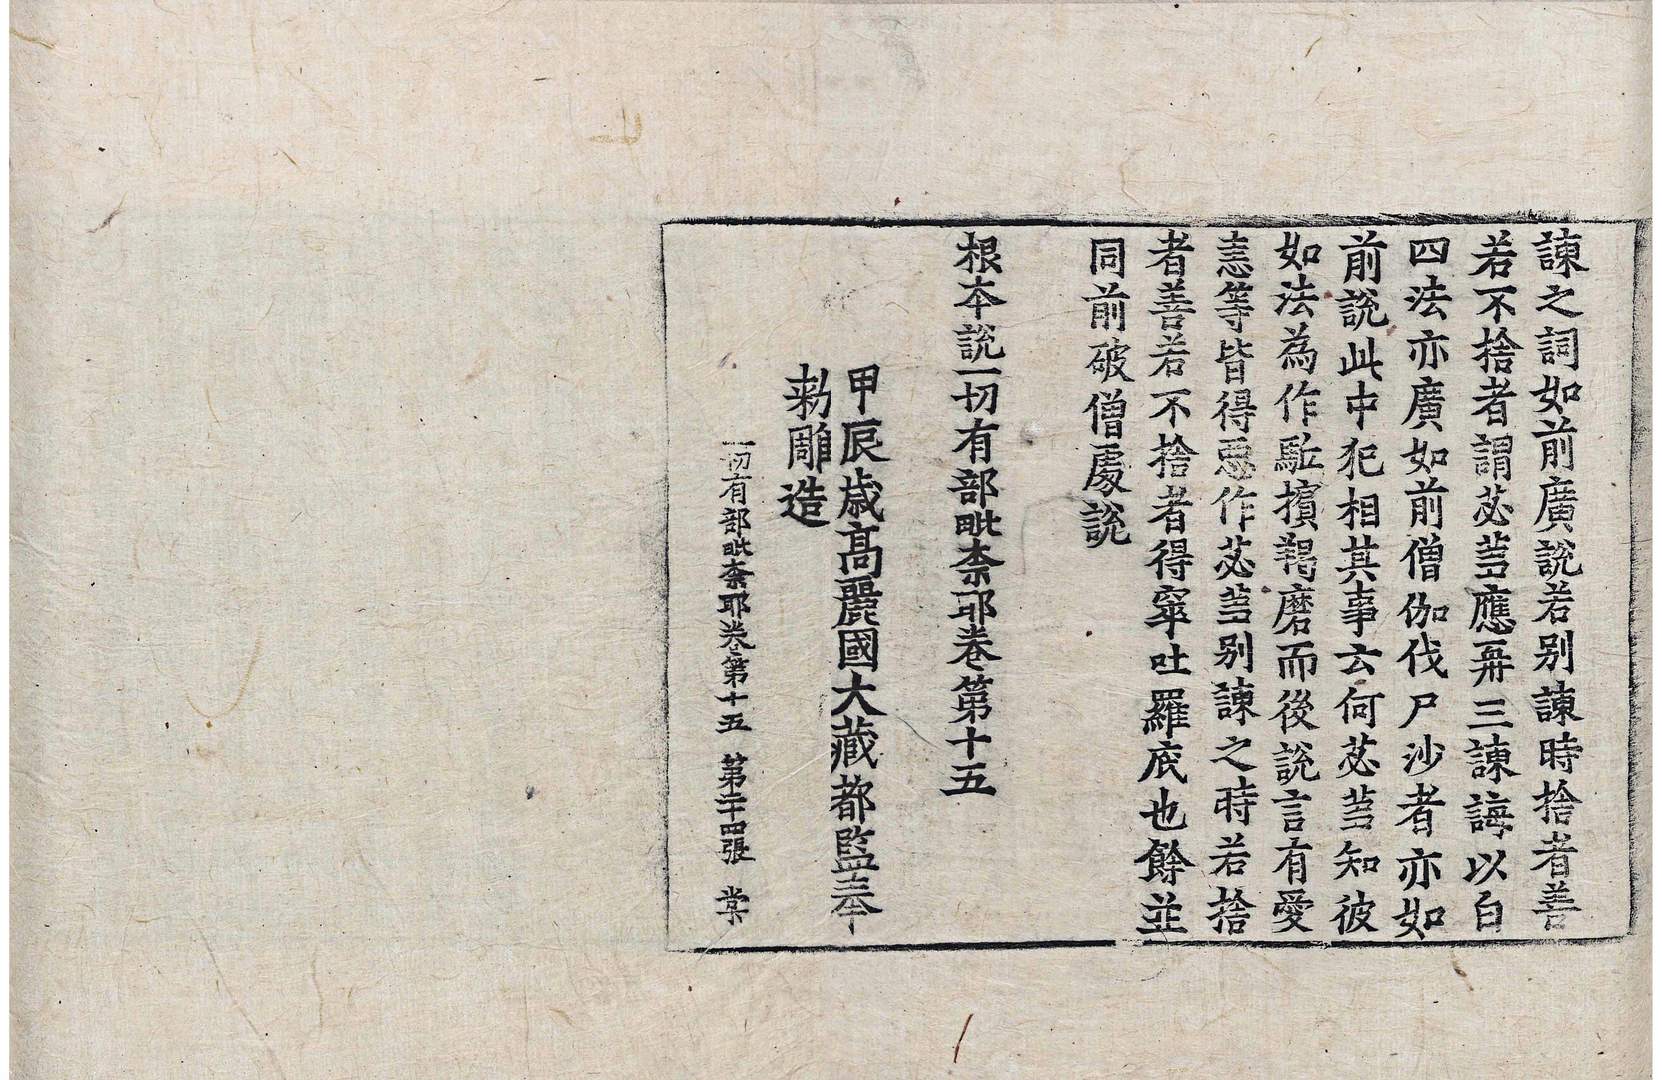 諫之詞如前廣說若別諫時捨者善
若不捨者謂苾芻應再三諫誨以白
四法亦廣如前僧伽伐尸沙者亦如
前說此中犯相其事云何苾芻知彼
如法為作驅擯羯磨而後說言有愛
恚等皆得惡作苾芻別諫之時若捨
者善若不捨者得窣吐羅底也餘並
同前破僧處說
根本說一切有部毗奈耶卷第十五
甲辰歲高麗國大藏都監奉
勑雕造
一切有部毗奈耶卷第十五 第二十四張 棠